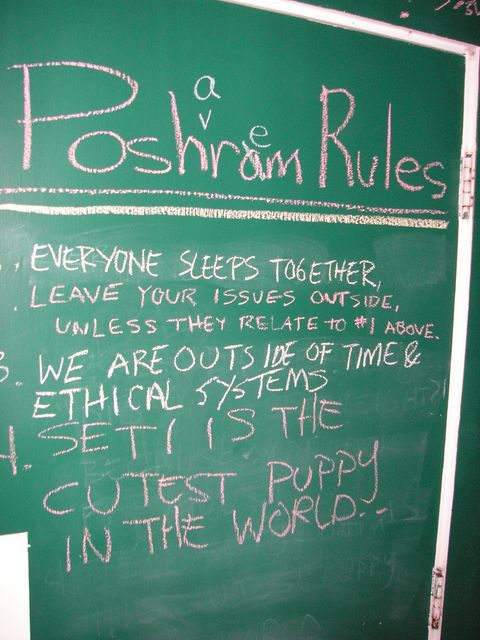 Poshram Rules
a
v
e
. EVERYONE SLEEPS TOGETHER,
. LEAVE YOUR ISSUES OUTSIDE,
UNLESS THEY RELATE TO #1 ABOVE.
3. WE ARE OUTSIDE OF TIME &
ETHICAL SYSTEMS
4. SETI IS THE
CUTEST PUPPY
IN THE WORLD..